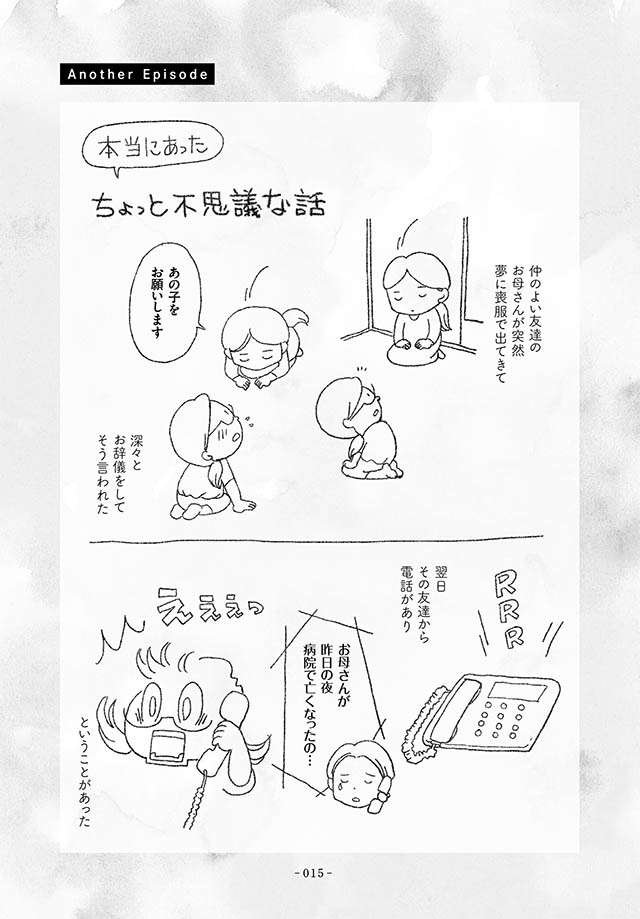 Another Episode
本当にあった
ちょっと不思議な話
仲のよい友達の
お母さんが突然
夢に喪服で出てきて
あの子を
お願いします
深々と
お辞儀をして
そう言われた
RRR
翌日
その友達から
電話があり
お母さんが
昨日の夜
病院で亡くなったの…
えええっ
ということがあった
- 015 -